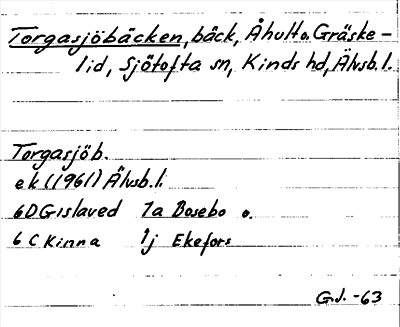 Torgasjöbäcken, bäck, Åhult o. Gräske-
lid, Sjötofta sn, Kinds hd, Älvsb. l.
Torgasjöb.
ek (1961) Älvsb. l.
6D Gislaved 1a Bosebo o.
6 C Kinna 1j Ekefors
G.J. -63